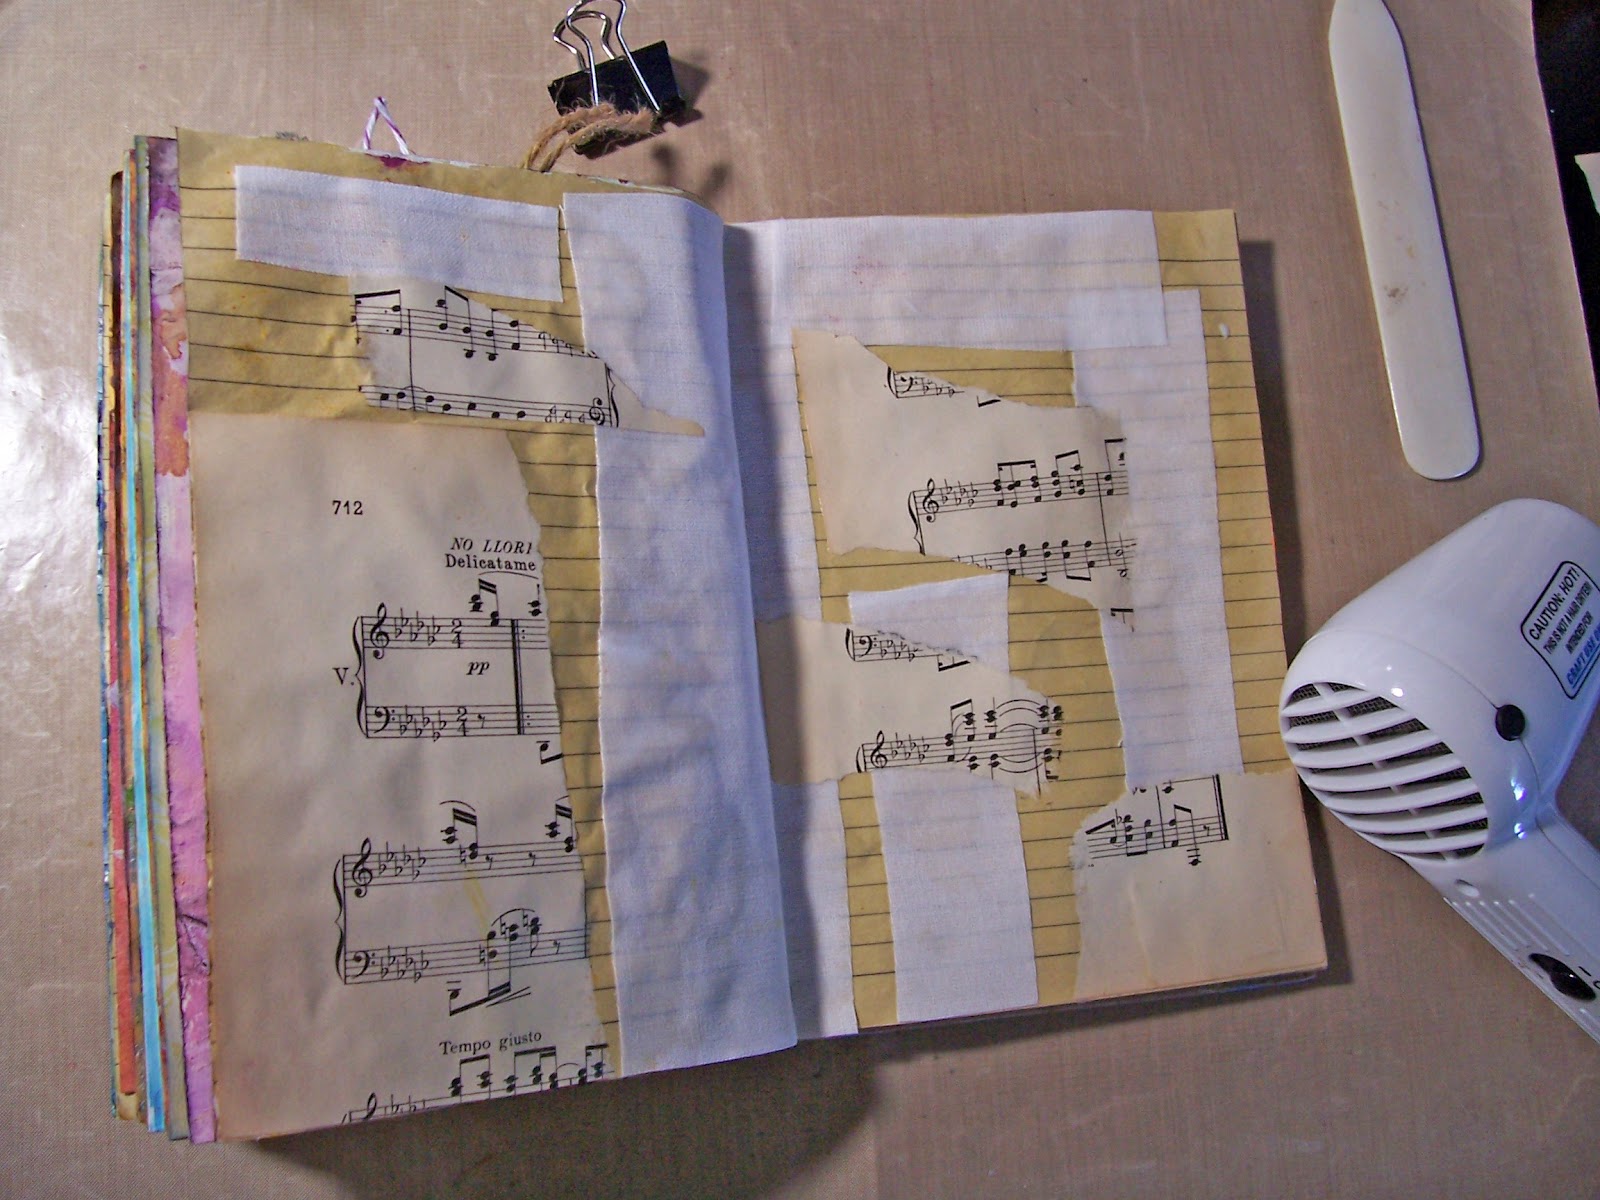 712
NO LLORI
Delicatame
2
4
V.
pp
2
4
Tempo giusto
CAUTION: HOT!
THIS IS NOT A HAIR DRYER!
INTENDED FOR
CRAFT USE